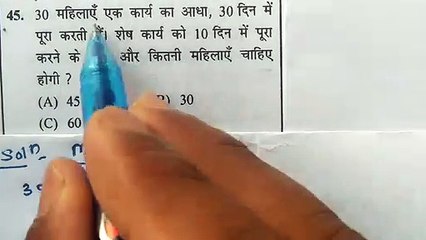 45. 30 महिलाएँ एक कार्य का आधा, 30 दिन में
पूरा करती हैं। शेष कार्य को 10 दिन में पूरा
करने के और कितनी महिलाएँ चाहिए
होगी ?
(A) 45 30
(C) 60
Soln
3